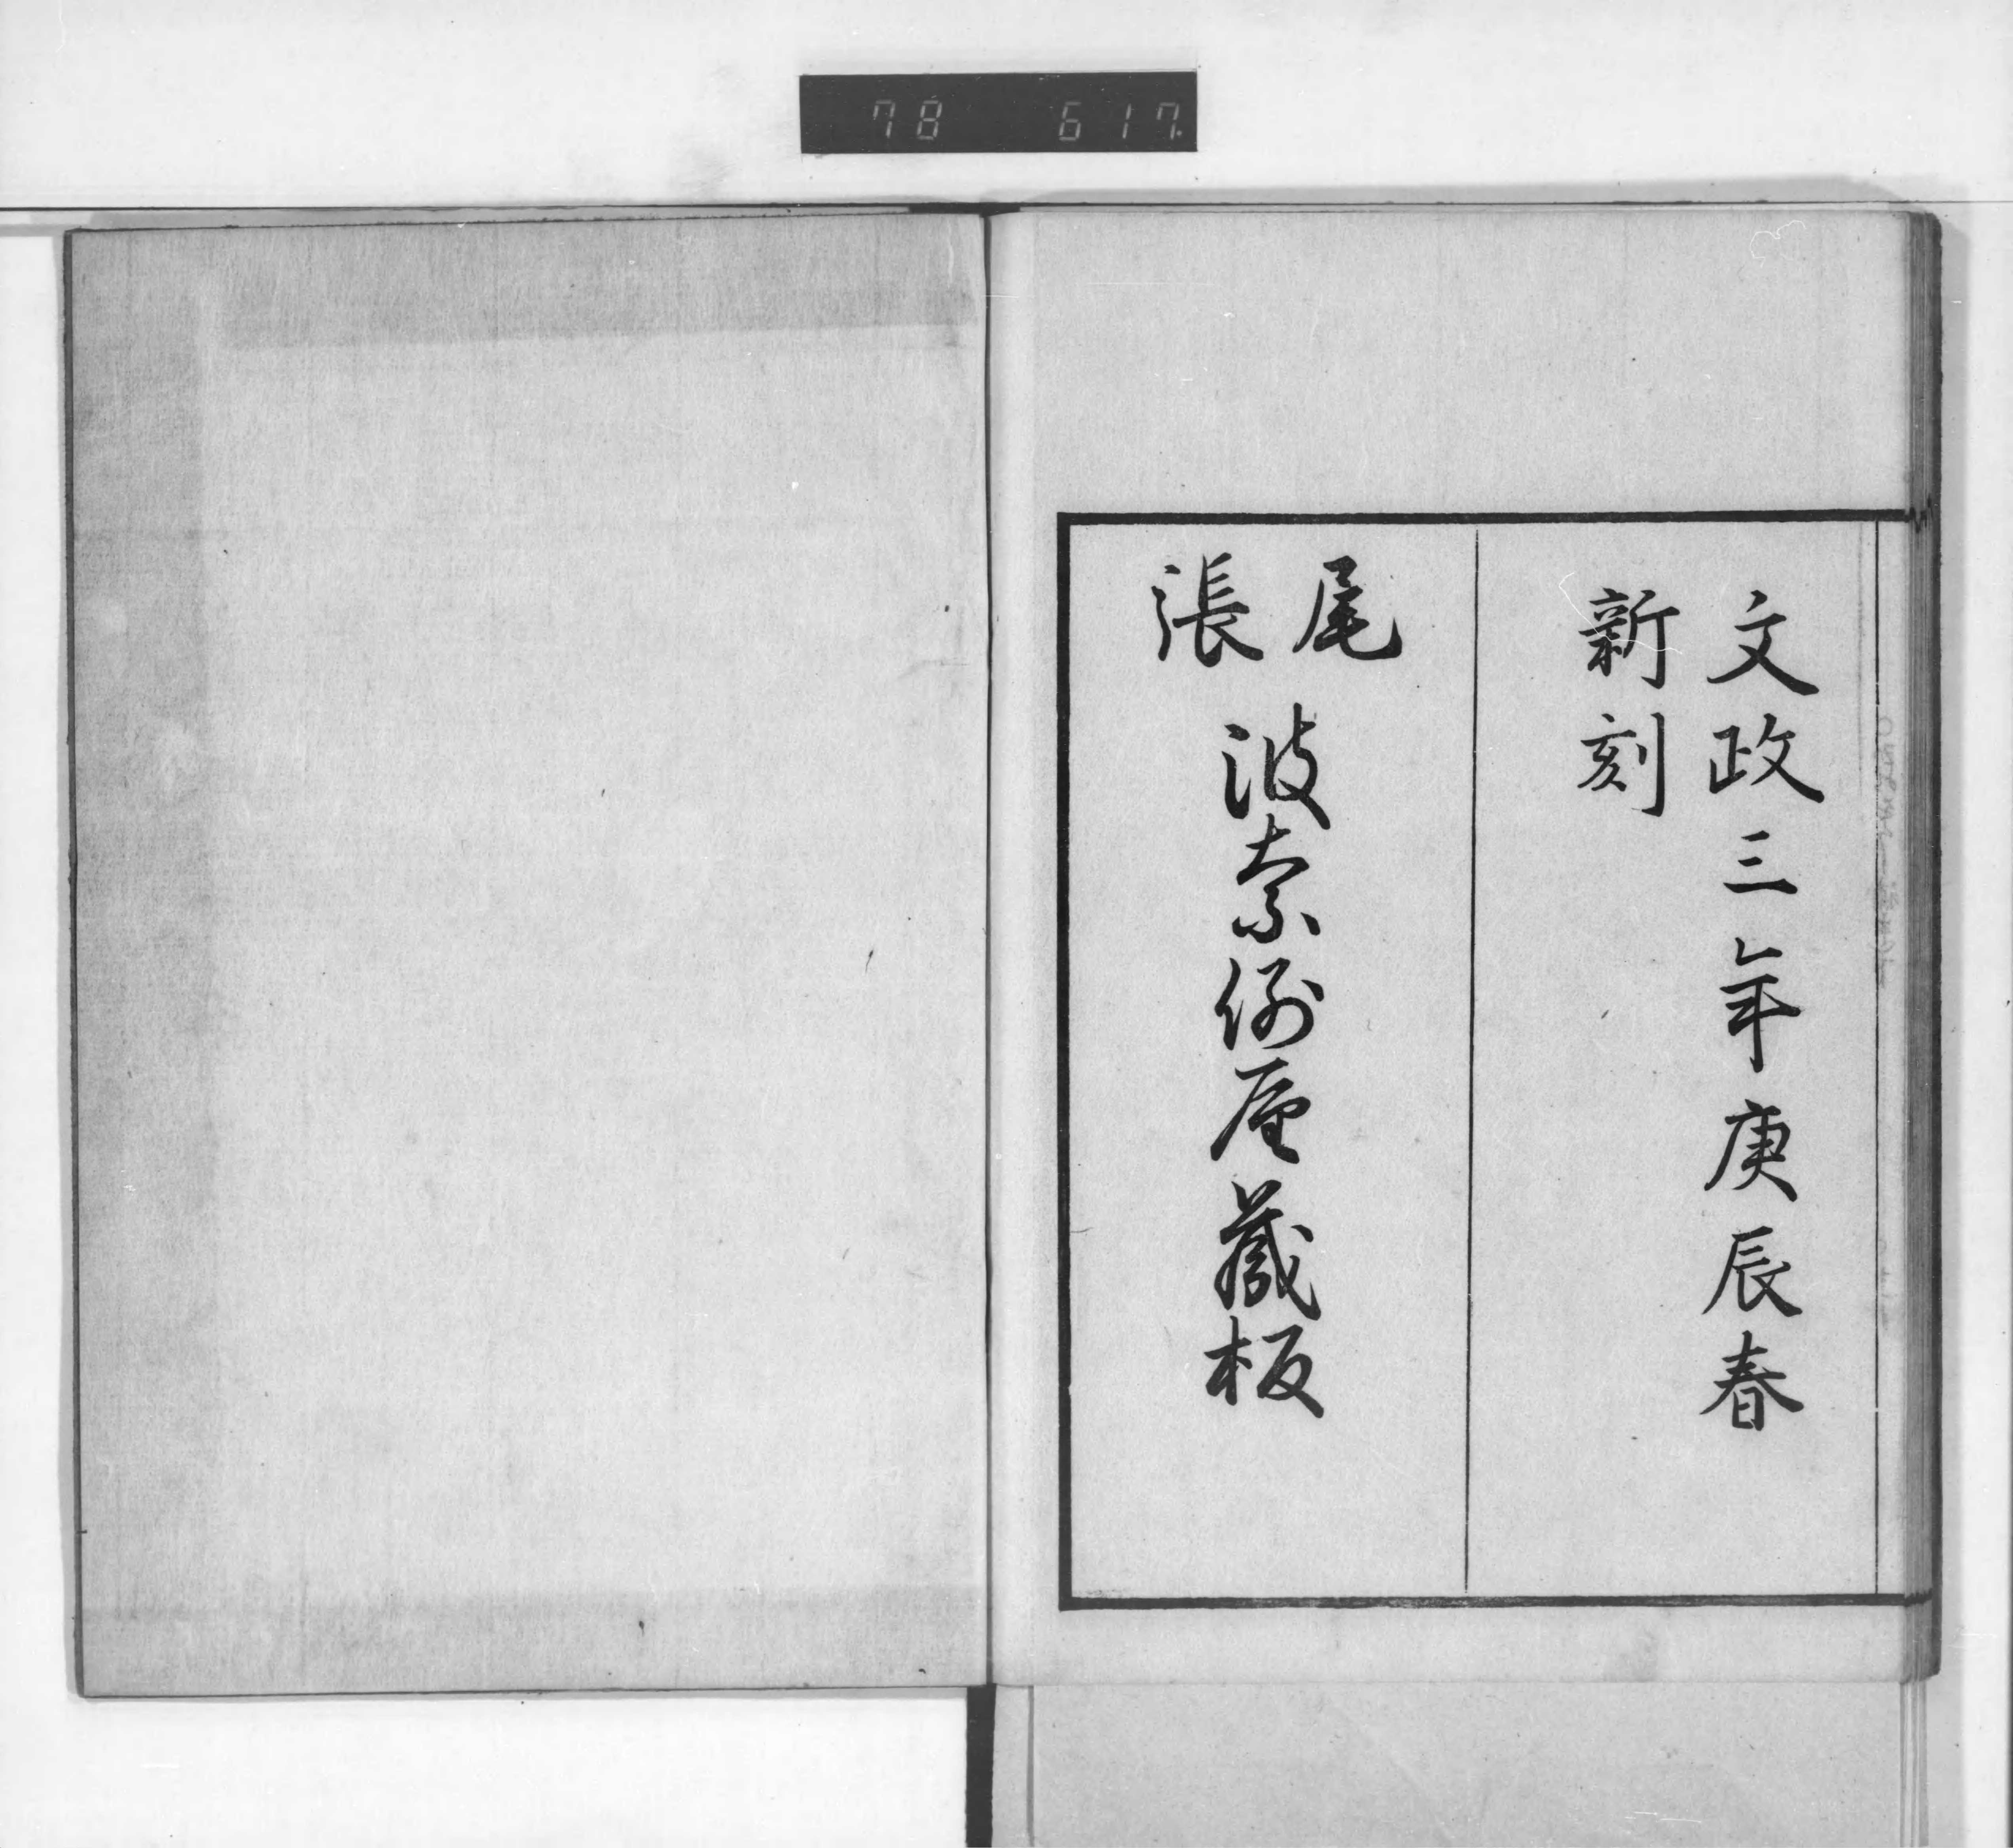 78 617.
文政三年庚辰春
新刻
尾張
波柰例屋藏板